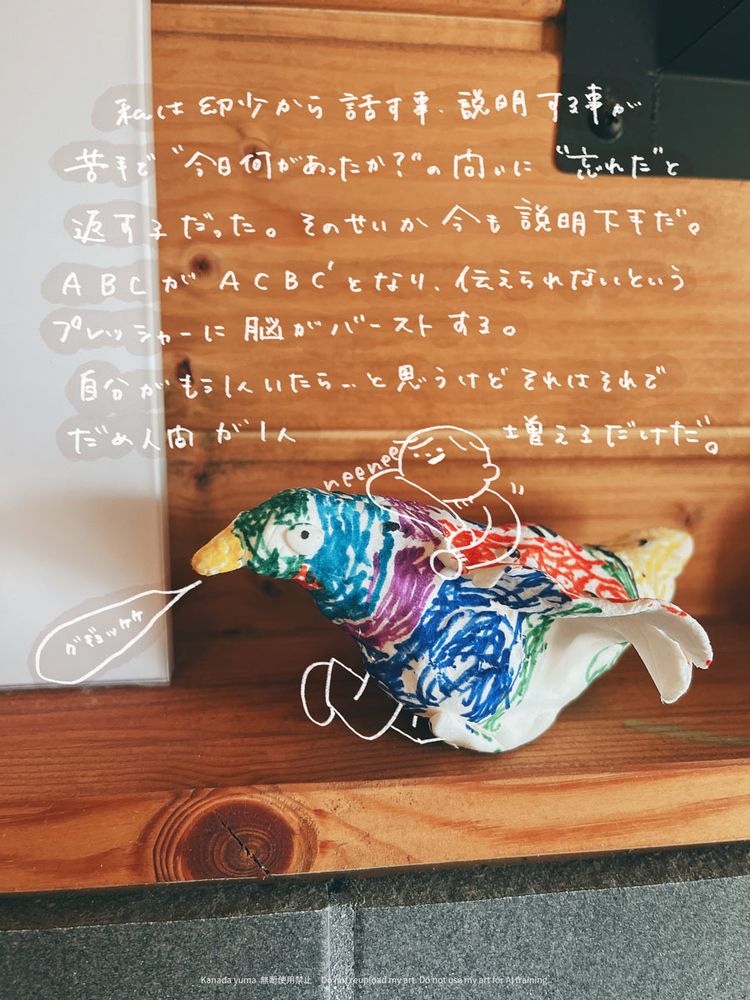 私は幼少から話す事、説明する事が
苦手で“今日何があったか?”の問いに“忘れた”と
返す子だった。そのせいか今も説明下手だ。
ABCがACBC'となり、伝えられないという
プレッシャーに脳がバーストする。
自分がもう1人いたら..と思うけどそれはそれで
だめ人間が1人増えるだけだ。
neenee
グギョッケケ
Kanada yuma 無断使用禁止 Do not reupload my art. Do not use my art for AI training.